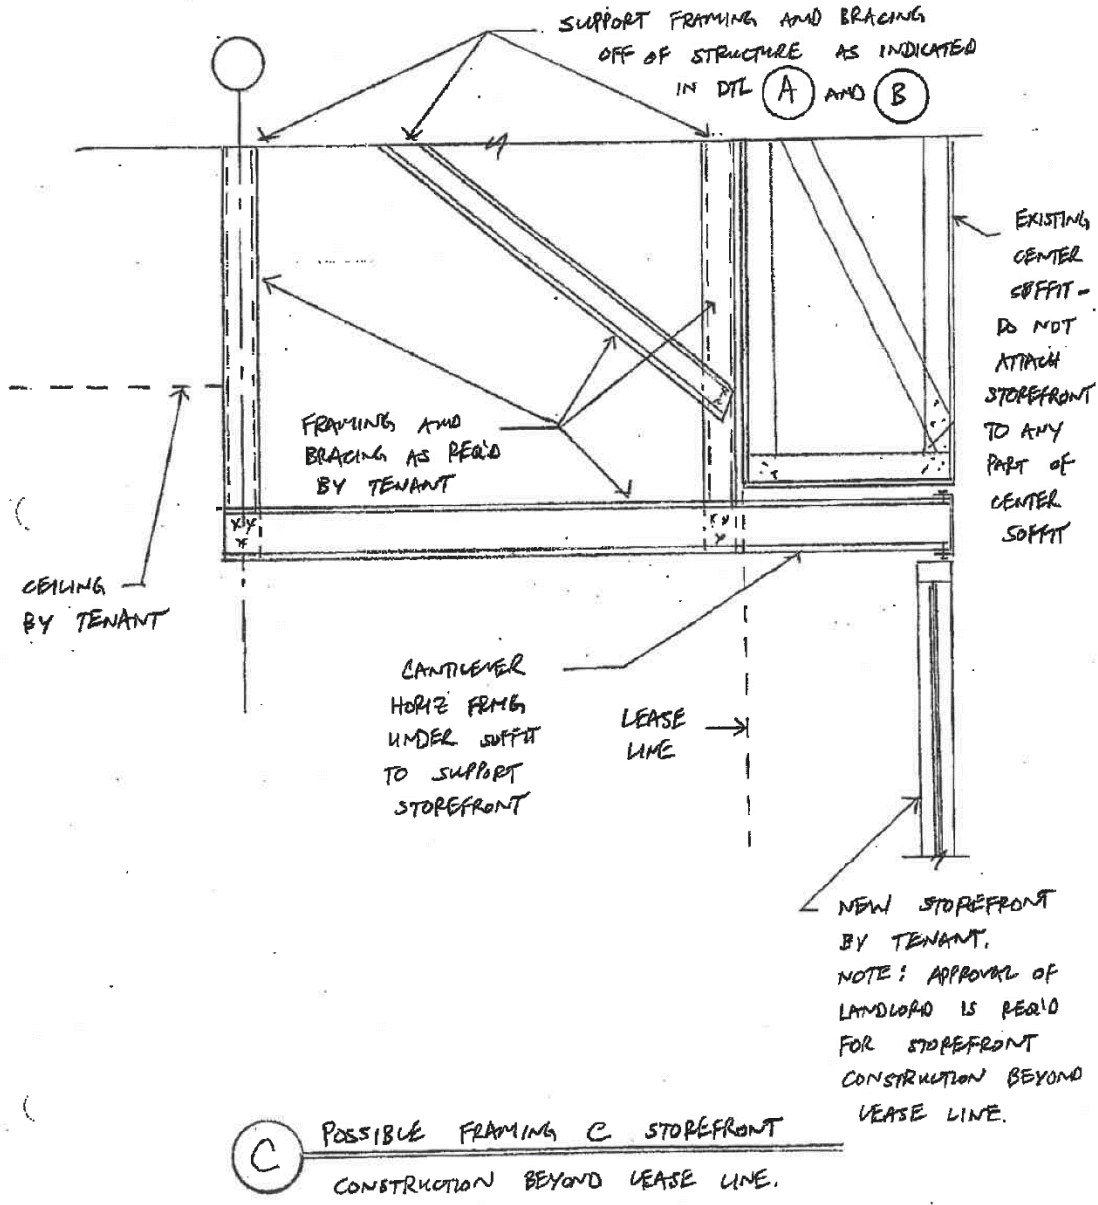 SUPPORT FRAMING AND BRACING
OFF OF STRUCTURE AS INDICATED
IN DTL A AND B
EXISTING
CENTER
SOFFIT -
DO NOT
ATTACH
STOREFRONT
TO ANY
PART OF
CENTER
SOFFIT
FRAMING AND
BRACING AS REQ'D
BY TENANT
CEILING
BY TENANT
CANTILEVER
HORIZ FRMG
UNDER SOFFIT
TO SUPPORT
STOREFRONT
LEASE
LINE
NEW STOREFRONT
BY TENANT.
NOTE: APPROVAL OF
LANDLORD IS REQ'D
FOR STOREFRONT
CONSTRUCTION BEYOND
LEASE LINE.
C POSSIBLE FRAMING C STOREFRONT
CONSTRUCTION BEYOND LEASE LINE.